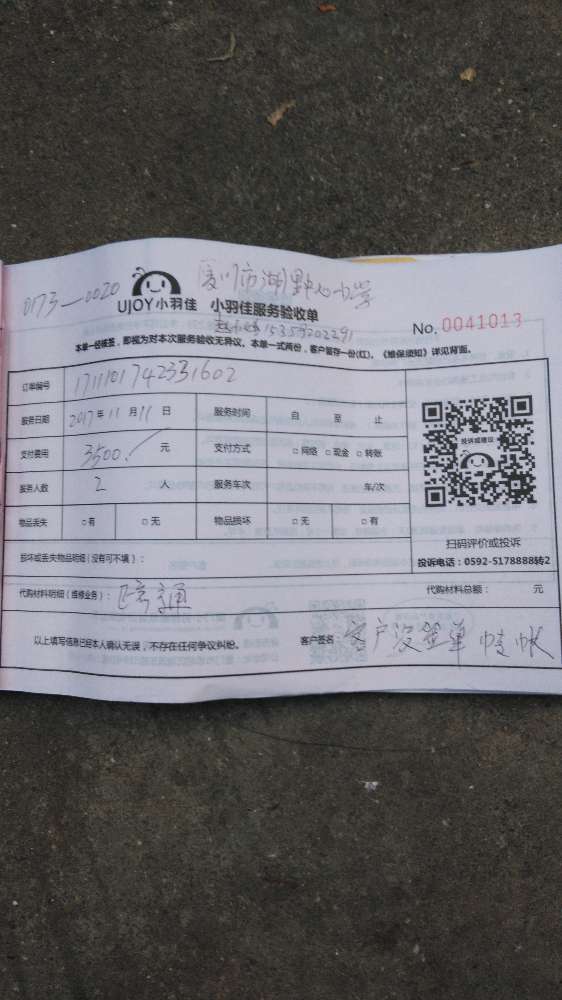 0173—0020
厦门市湖里中心小学
UJOY小羽佳 小羽佳服务验收单
15359202291
No. 0041013
本单一经核签，即视为对本次服务验收无异议。本单一式两份，客户留存一份(红)。《维保须知》详见背面。
订单编号 1711101742331602
服务日期 2017年11月11日 服务时间 自 至 止
支付费用 3500. 元 支付方式 □网络 □现金 □转账
服务人数 2 人 服务车次 车/次
物品丢失 □有 □无 物品损坏 □无 □有
投诉或建议
扫码评价或投诉
投诉电话：0592-5178888转2
损坏或丢失物品明细(没有可不填)：
代购材料明细(维修业务)： 疏通
代购材料总额： 元
以上填写信息已经本人确认无误，不存在任何争议纠纷。
客户签名： 客户没签单